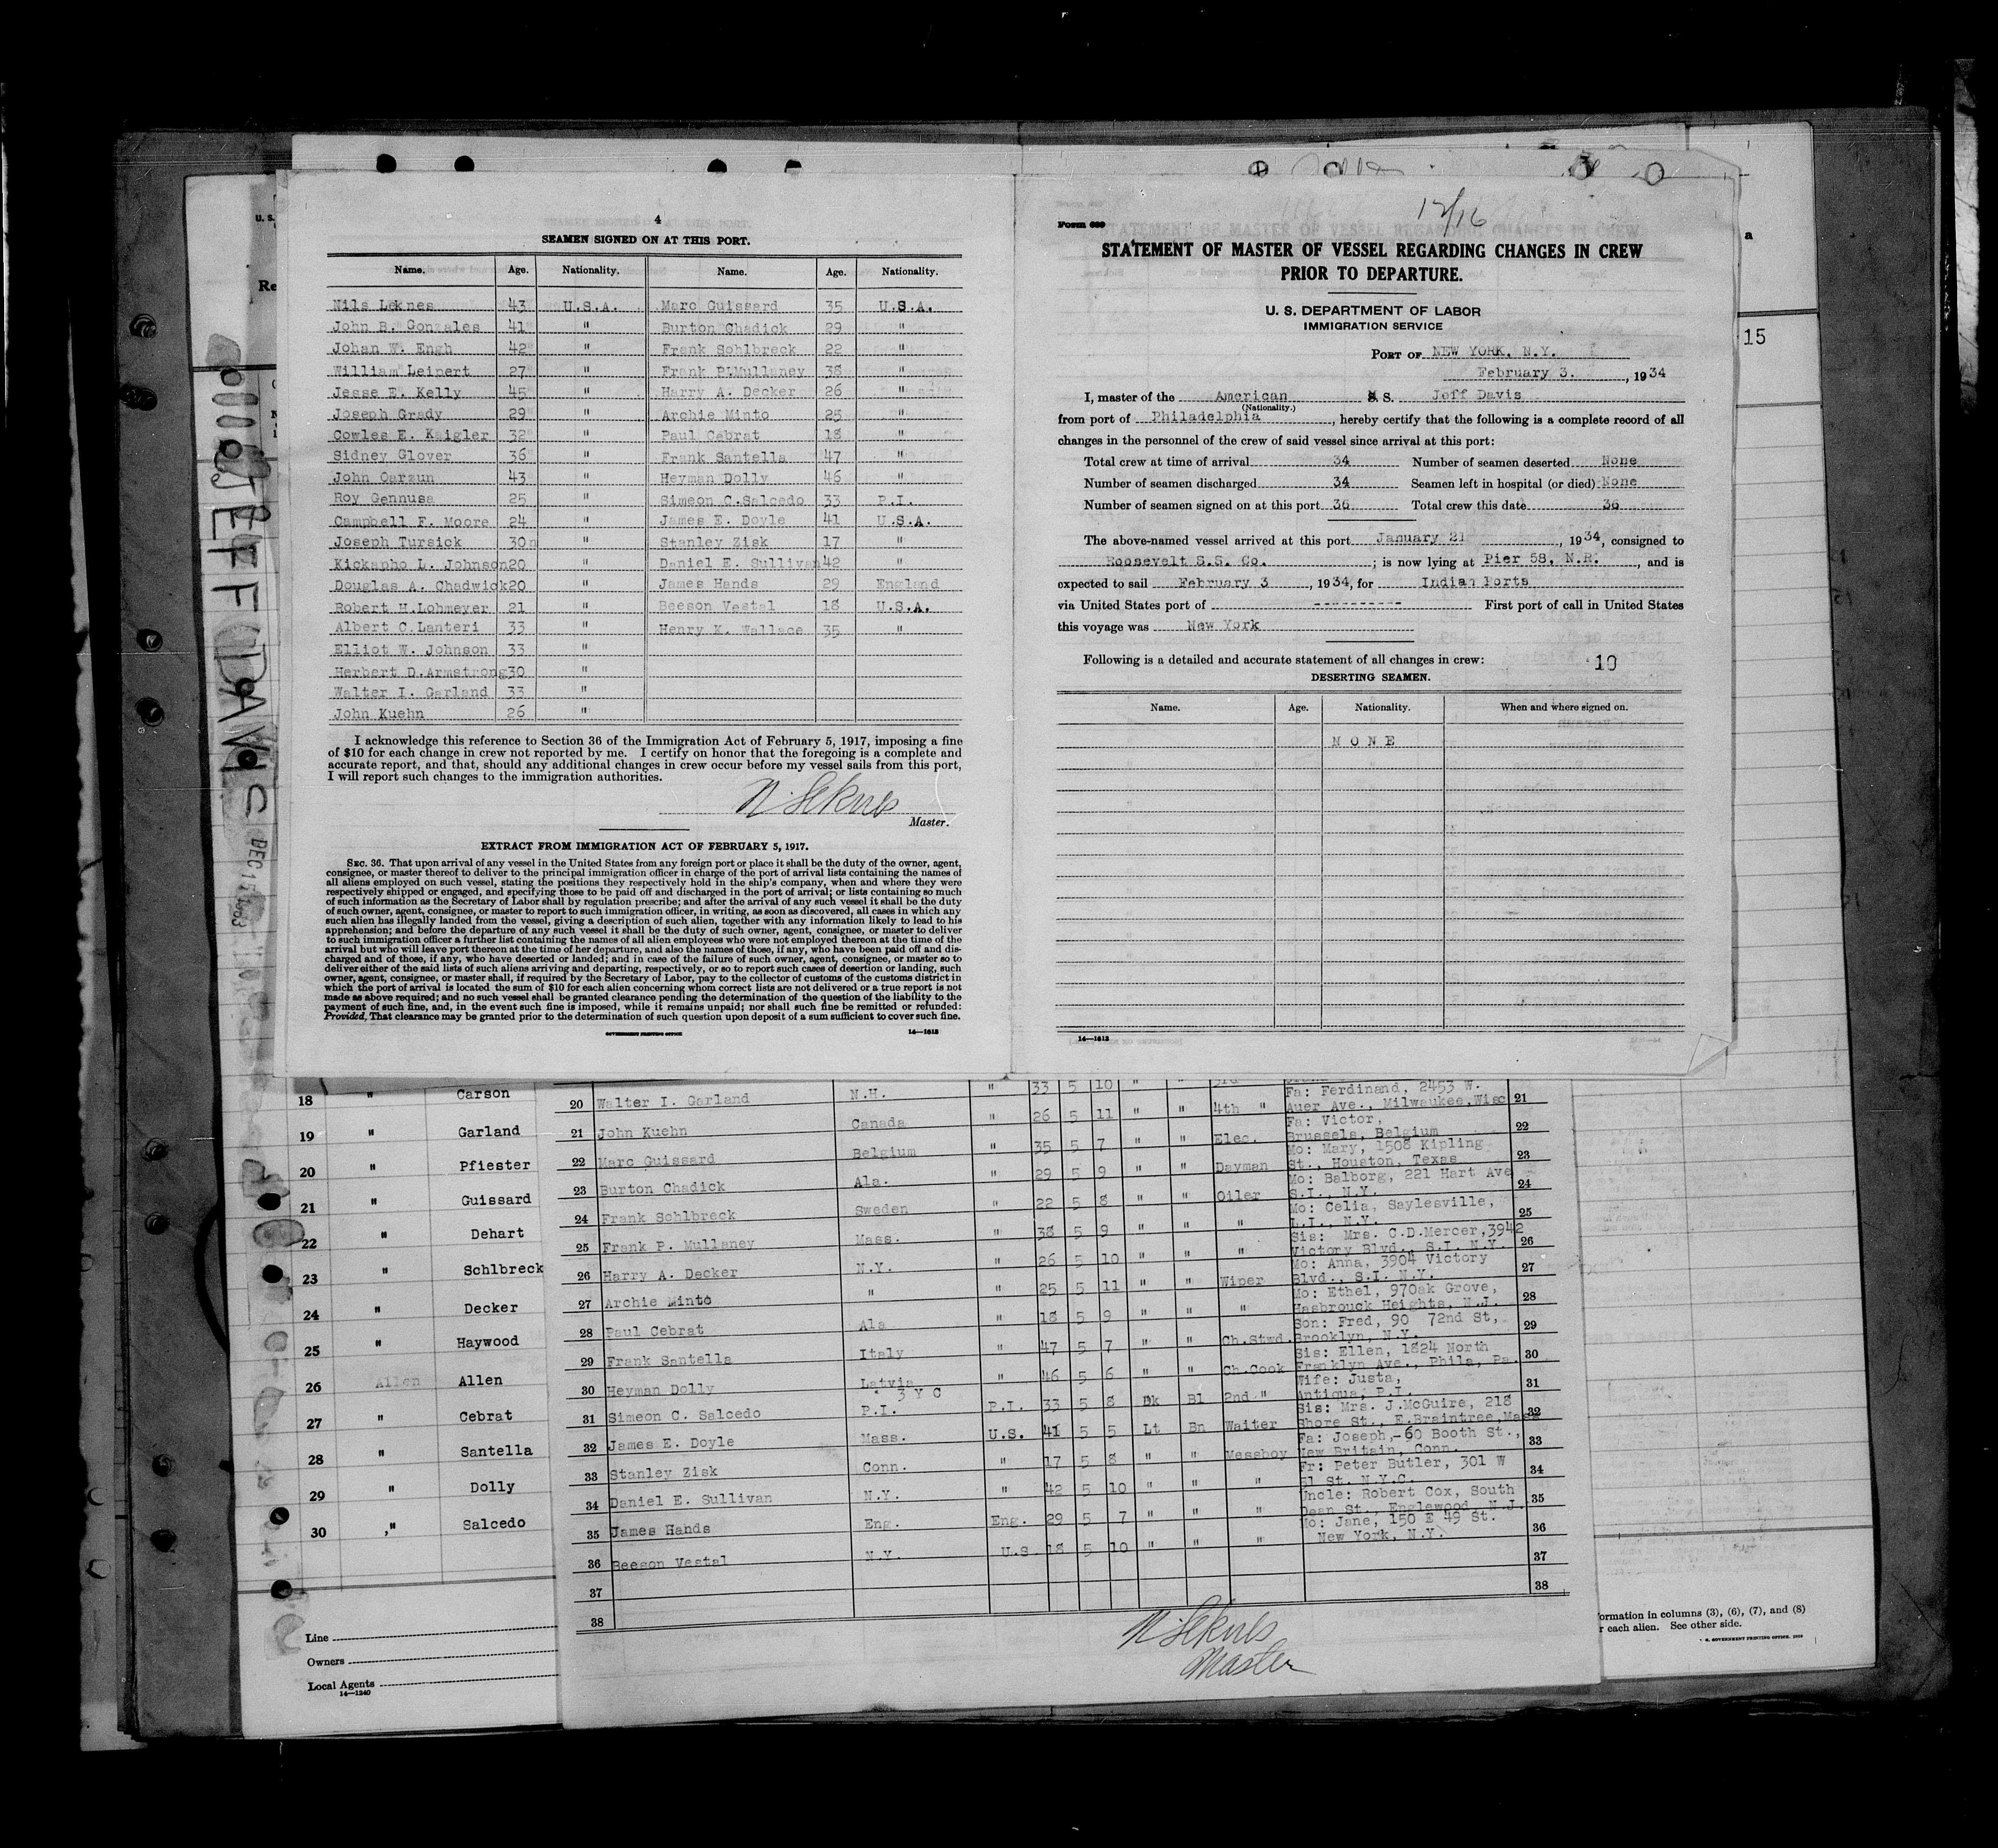 4
SEAMEN SIGNED ON AT THIS PORT.
Name. Age. Nationality. Name. Age. Nationality.
Nils Leknes 43 U.S.A. Marc Guissard 35 U.S.A.
John B. Gonzales 41 " Burton Chadick 29 "
Johan W. Engh 42 " Frank Sohlbreck 22 "
William Leinert 27 " Frank P.Mullaney 38 "
Jesse E. Kelly 45 " Harry A. Decker 26 "
Joseph Grady 29 " Archie Minto 25 "
Cowles E. Kaigler 32 " Paul Cebrat 18 "
Sidney Glover 36 " Frank Santella 47 "
John Oarzun 43 " Heyman Dolly 46 "
Roy Gennusa 25 " Simeon C.Salcedo 33 P.I.
Campbell F. Moore 24 " James E. Doyle 41 U.S.A.
Joseph Tursick 30 " Stanley Zisk 17 "
Kickapho L. Johnson 20 " Daniel E. Sullivan 42 "
Douglas A. Chadwick 20 " James Hands 29 England
Robert H.Lohmeyer 21 " Beeson Vestal 18 U.S.A.
Albert C.Lanteri 33 " Henry K. Wallace 35 "
Elliot W. Johnson 33 "
Herbert D.Armstrong 30 "
Walter I. Garland 33 "
John Kuehn 26 "
I acknowledge this reference to Section 36 of the Immigration Act of February 5, 1917, imposing a fine
of $10 for each change in crew not reported by me. I certify on honor that the foregoing is a complete and
accurate report, and that, should any additional changes in crew occur before my vessel sails from this port,
I will report such changes to the immigration authorities.
N. Leknes
Master.
EXTRACT FROM IMMIGRATION ACT OF FEBRUARY 5, 1917.
SEC. 36. That upon arrival of any vessel in the United States from any foreign port or place it shall be the duty of the owner, agent,
consignee, or master thereof to deliver to the principal immigration officer in charge of the port of arrival lists containing the names of
all aliens employed on such vessel, stating the positions they respectively hold in the ship's company, when and where they were
respectively shipped or engaged, and specifying those to be paid off and discharged in the port of arrival; or lists containing so much
of such information as the Secretary of Labor shall by regulation prescribe; and after the arrival of any such vessel it shall be the duty
of such owner, agent, consignee, or master to report to such immigration officer, in writing, as soon as discovered, all cases in which any
such alien has illegally landed from the vessel, giving a description of such alien, together with any information likely to lead to his
apprehension; and before the departure of any such vessel it shall be the duty of such owner, agent, consignee, or master to deliver
to such immigration officer a further list containing the names of all alien employees who were not employed thereon at the time of the
arrival but who will leave port thereon at the time of her departure, and also the names of those, if any, who have been paid off and dis-
charged and of those, if any, who have deserted or landed; and in case of the failure of such owner, agent, consignee, or master so to
deliver either of the said lists of such aliens arriving and departing, respectively, or so to report such cases of desertion or landing, such
owner, agent, consignee, or master shall, if required by the Secretary of Labor, pay to the collector of customs of the customs district in
which the port of arrival is located the sum of $10 for each alien concerning whom correct lists are not delivered or a true report is not
made as above required; and no such vessel shall be granted clearance pending the determination of the question of the liability to the
payment of such fine, and, in the event such fine is imposed, while it remains unpaid; nor shall such fine be remitted or refunded:
Provided, That clearance may be granted prior to the determination of such question upon deposit of a sum sufficient to cover such fine.
GOVERNMENT PRINTING OFFICE 14—1613
12/16
Form 689
STATEMENT OF MASTER OF VESSEL REGARDING CHANGES IN CREW
PRIOR TO DEPARTURE.
U. S. DEPARTMENT OF LABOR
IMMIGRATION SERVICE
PORT OF NEW YORK, N.Y.
February 3. , 1934
I, master of the American S. S. Jeff Davis
(Nationality.)
from port of Philadelphia , hereby certify that the following is a complete record of all
changes in the personnel of the crew of said vessel since arrival at this port:
Total crew at time of arrival 34 Number of seamen deserted None
Number of seamen discharged 34 Seamen left in hospital (or died) None
Number of seamen signed on at this port 36 Total crew this date 36
The above-named vessel arrived at this port January 21 , 1934, consigned to
Roosevelt S.S. Co. ; is now lying at Pier 58, N.R. , and is
expected to sail February 3 , 1934, for Indian Ports
via United States port of ---------- First port of call in United States
this voyage was New York
Following is a detailed and accurate statement of all changes in crew: 10
DESERTING SEAMEN.
Name. Age. Nationality. When and where signed on.
N O N E
14—1613
a
15
U. S.
Re
JEFF DAVIS
DEC 15 1933
18 " Carson
19 " Garland
20 " Pfiester
21 " Guissard
22 " Dehart
23 " Schlbreck
24 " Decker
25 " Haywood
26 Allen Allen
27 " Cebrat
28 " Santella
29 " Dolly
30 " Salcedo
Line
Owners
Local Agents
14—1240
20 Walter I. Garland N.H. " 33 5 10 " " 3rd
Fa: Ferdinand, 2453 W.
21 John Kuehn Canada " 26 5 11 " " 4th " Auer Ave., Milwaukee,Wisc 21
Fa: Victor,
22 Marc Guissard Belgium " 35 5 7 " " Elec. Brussels, Belgium 22
Mo: Mary, 1508 Kipling
23 Burton Chadick Ala. " 29 5 9 " " Dayman St., Houston, Texas 23
Mo: Balborg, 221 Hart Ave
24 Frank Sohlbreck Sweden " 22 5 8 " " Oiler S.I., N.Y. 24
Mo: Celia, Saylesville,
25 Frank P. Mullaney Mass. " 38 5 9 " " " L.I., N.Y. 25
Sis: Mrs. C.D.Mercer,3942
26 Harry A. Decker N.Y. " 26 5 10 " " " Victory Blvd., S.I. N.Y. 26
Mo: Anna, 3904 Victory
27 Archie Minto " " 25 5 11 " " Wiper Blvd., S.I. N.Y. 27
Mo: Ethel, 970ak Grove,
28 Paul Cebrat Ala " 18 5 9 " " " Hasbrouck Heights, N.J. 28
Son: Fred, 90 72nd St,
29 Frank Santella Italy " 47 5 7 " " Ch.Stwd. Brooklyn, N.Y. 29
Sis: Ellen, 1824 North
30 Heyman Dolly Latvia " 46 5 6 " " Ch.Cook Franklyn Ave., Phila, Pa. 30
3 Y C Wife: Justa,
31 Simeon C. Salcedo P.I. P.I. 33 5 8 Dk Bl 2nd " Antiqua, P.I. 31
Sis: Mrs. J.McGuire, 218
32 James E. Doyle Mass. U.S. 41 5 5 Lt Bn Waiter Shore St., E.Braintree,Mass 32
Fa: Joseph,-60 Booth St.,
33 Stanley Zisk Conn. " 17 5 8 " " Messboy New Britain, Conn. 33
Fr: Peter Butler, 301 W
34 Daniel E. Sullivan N.Y. " 42 5 10 " " " 51 St. N.Y.C. 34
Uncle: Robert Cox, South
35 James Hands Eng. Eng. 29 5 7 " " " Dean St., Englewood, N.J. 35
Mo: Jane, 150 E 49 St.
36 Beeson Vestal N.Y. U.S. 18 5 10 " " " New York, N.Y. 36
37 37
38 38
N. Leknes
Master
formation in columns (3), (6), (7), and (8)
r each alien. See other side.
GOVERNMENT PRINTING OFFICE